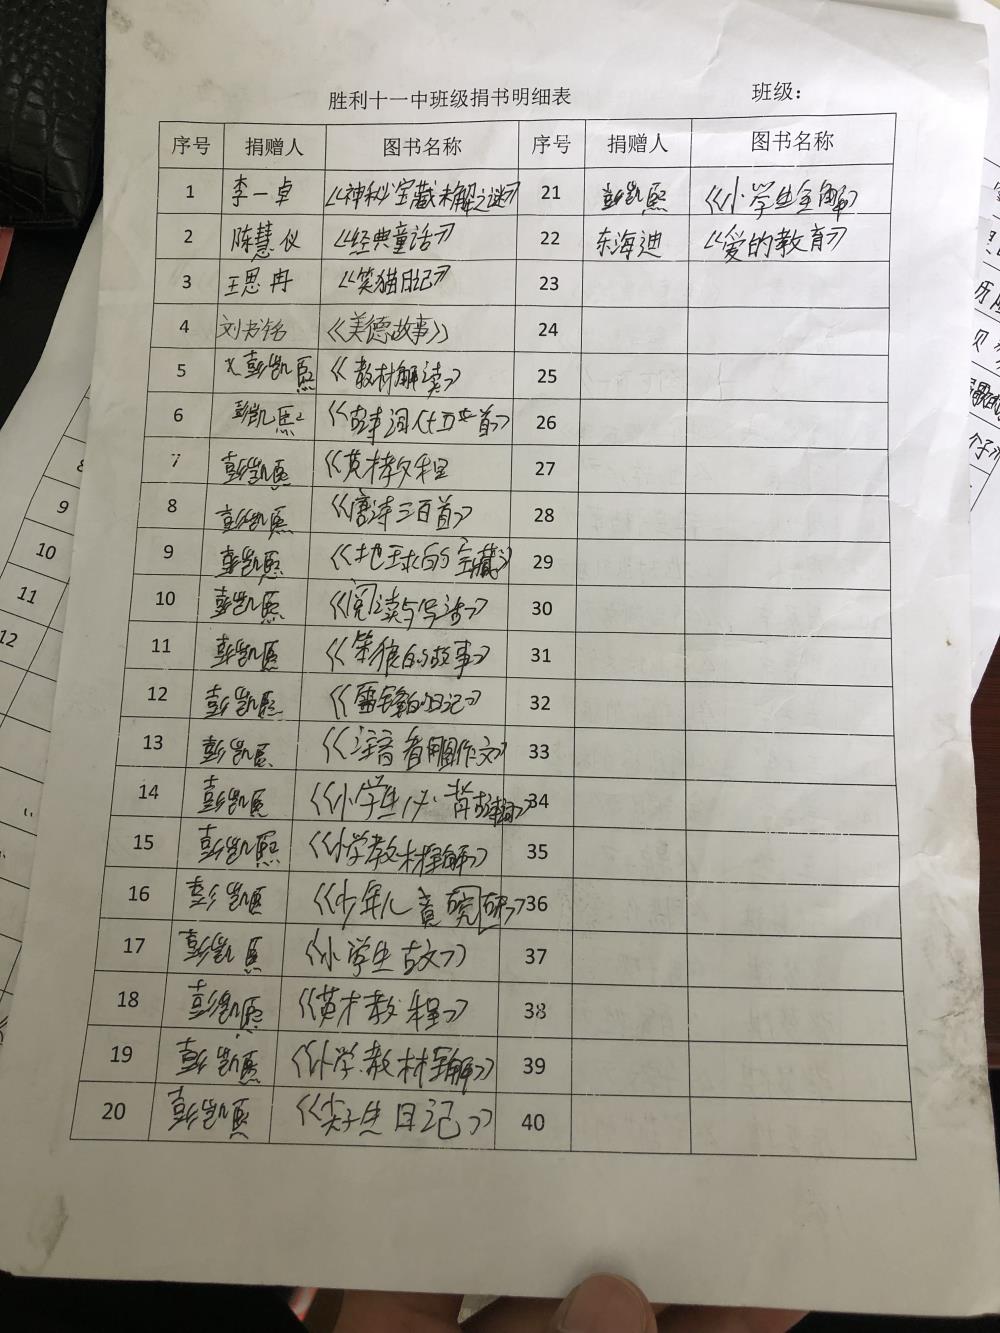 胜利十一中班级捐书明细表 班级：
序号 捐赠人 图书名称 序号 捐赠人 图书名称
1 李一卓 《神秘宝藏未解之谜》 21 彭凯熙 《小学生全解》
2 陈慧仪 《经典童话》 22 东海迪 《爱的教育》
3 王思冉 《笑猫日记》 23
4 刘书铭 《美德故事》 24
5 彭凯熙 《教材解读》 25
6 彭凯熙 26
7 彭凯熙 《英才教程 27
8 彭凯熙 《唐诗三百首》 28
9 彭凯熙 《地球的宝藏》 29
10 彭凯熙 《阅读与写法》 30
11 彭凯熙 《笨狼的故事》 31
12 彭凯熙 《雷锋的日记》 32
13 彭凯熙 《注音看图作文》 33
14 彭凯熙 《小学生必背古诗词》 34
15 彭凯熙 《小学教材全解》 35
16 彭凯熙 《少年儿童研究》 36
17 彭凯熙 《小学生古文》 37
18 彭凯熙 《英才教程》 38
19 彭凯熙 《小学教材全解》 39
20 彭凯熙 《尖子生日记》 40
8
9
10
11
12